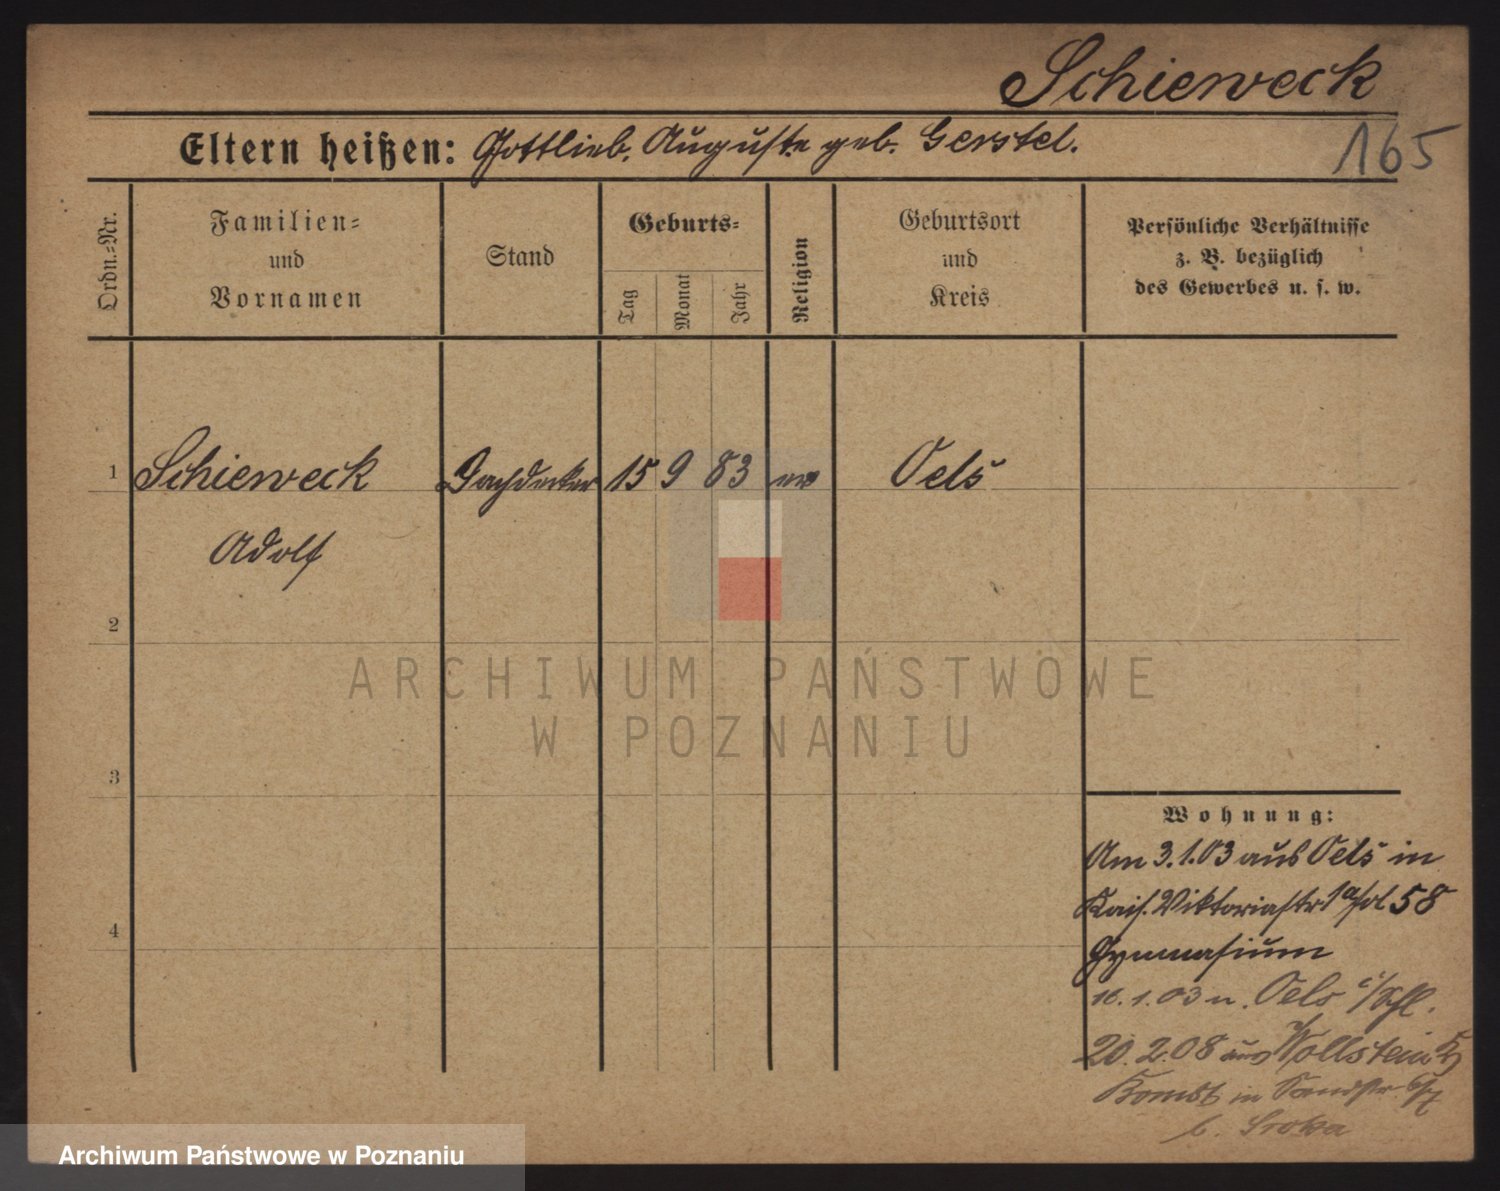 Schieweck
Eltern heißen: Gottlieb, Auguste geb. Gerstel.
165
Ordn.-Nr.
Familien-
und
Vornamen
Stand
Geburts-
Tag
Monat
Jahr
Religion
Geburtsort
und
Kreis
Persönliche Verhältnisse
z. B. bezüglich
des Gewerbes u. s. w.
1 Schieweck Dachdecker 15 9 83 ev Oels
Adolf
2
ARCHIWUM PAŃSTWOWE
W POZNANIU
3
Wohnung:
Am 3.1.03 aus Oels in
Kais. Viktoriastr 58
4
Gymnasium
1.03 n. Oels i/Schl.
20.2.08 aus Wollstein
Komst in
b. Sroka
Archiwum Państwowe w Poznaniu